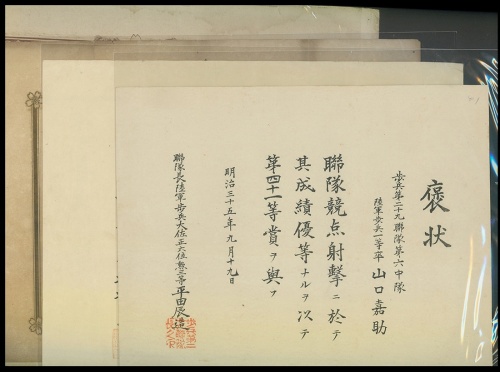 褒状
歩兵第二十九聯隊第六中隊
陸軍歩兵一等卒 山口嘉助
聯隊競点射撃ニ於テ
其成績優等ナルヲ以テ
第四十一等賞ヲ與フ
明治三十五年九月十九日
聯隊長陸軍歩兵大佐正六位勲三等平田辰造